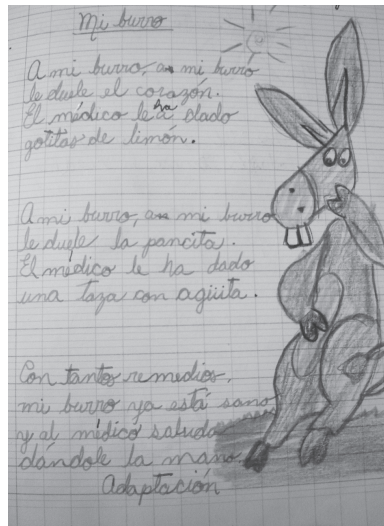 Mi burro
A mi burro, a mi burro
le duele el corazón.
El médico le ha dado
gotitas de limón.
A mi burro, a mi burro
le duele la pancita.
El médico le ha dado
una taza con agüita.
Con tanto remedios,
mi burro ya está sano
y al médico saluda
dándole la mano.
Adaptación